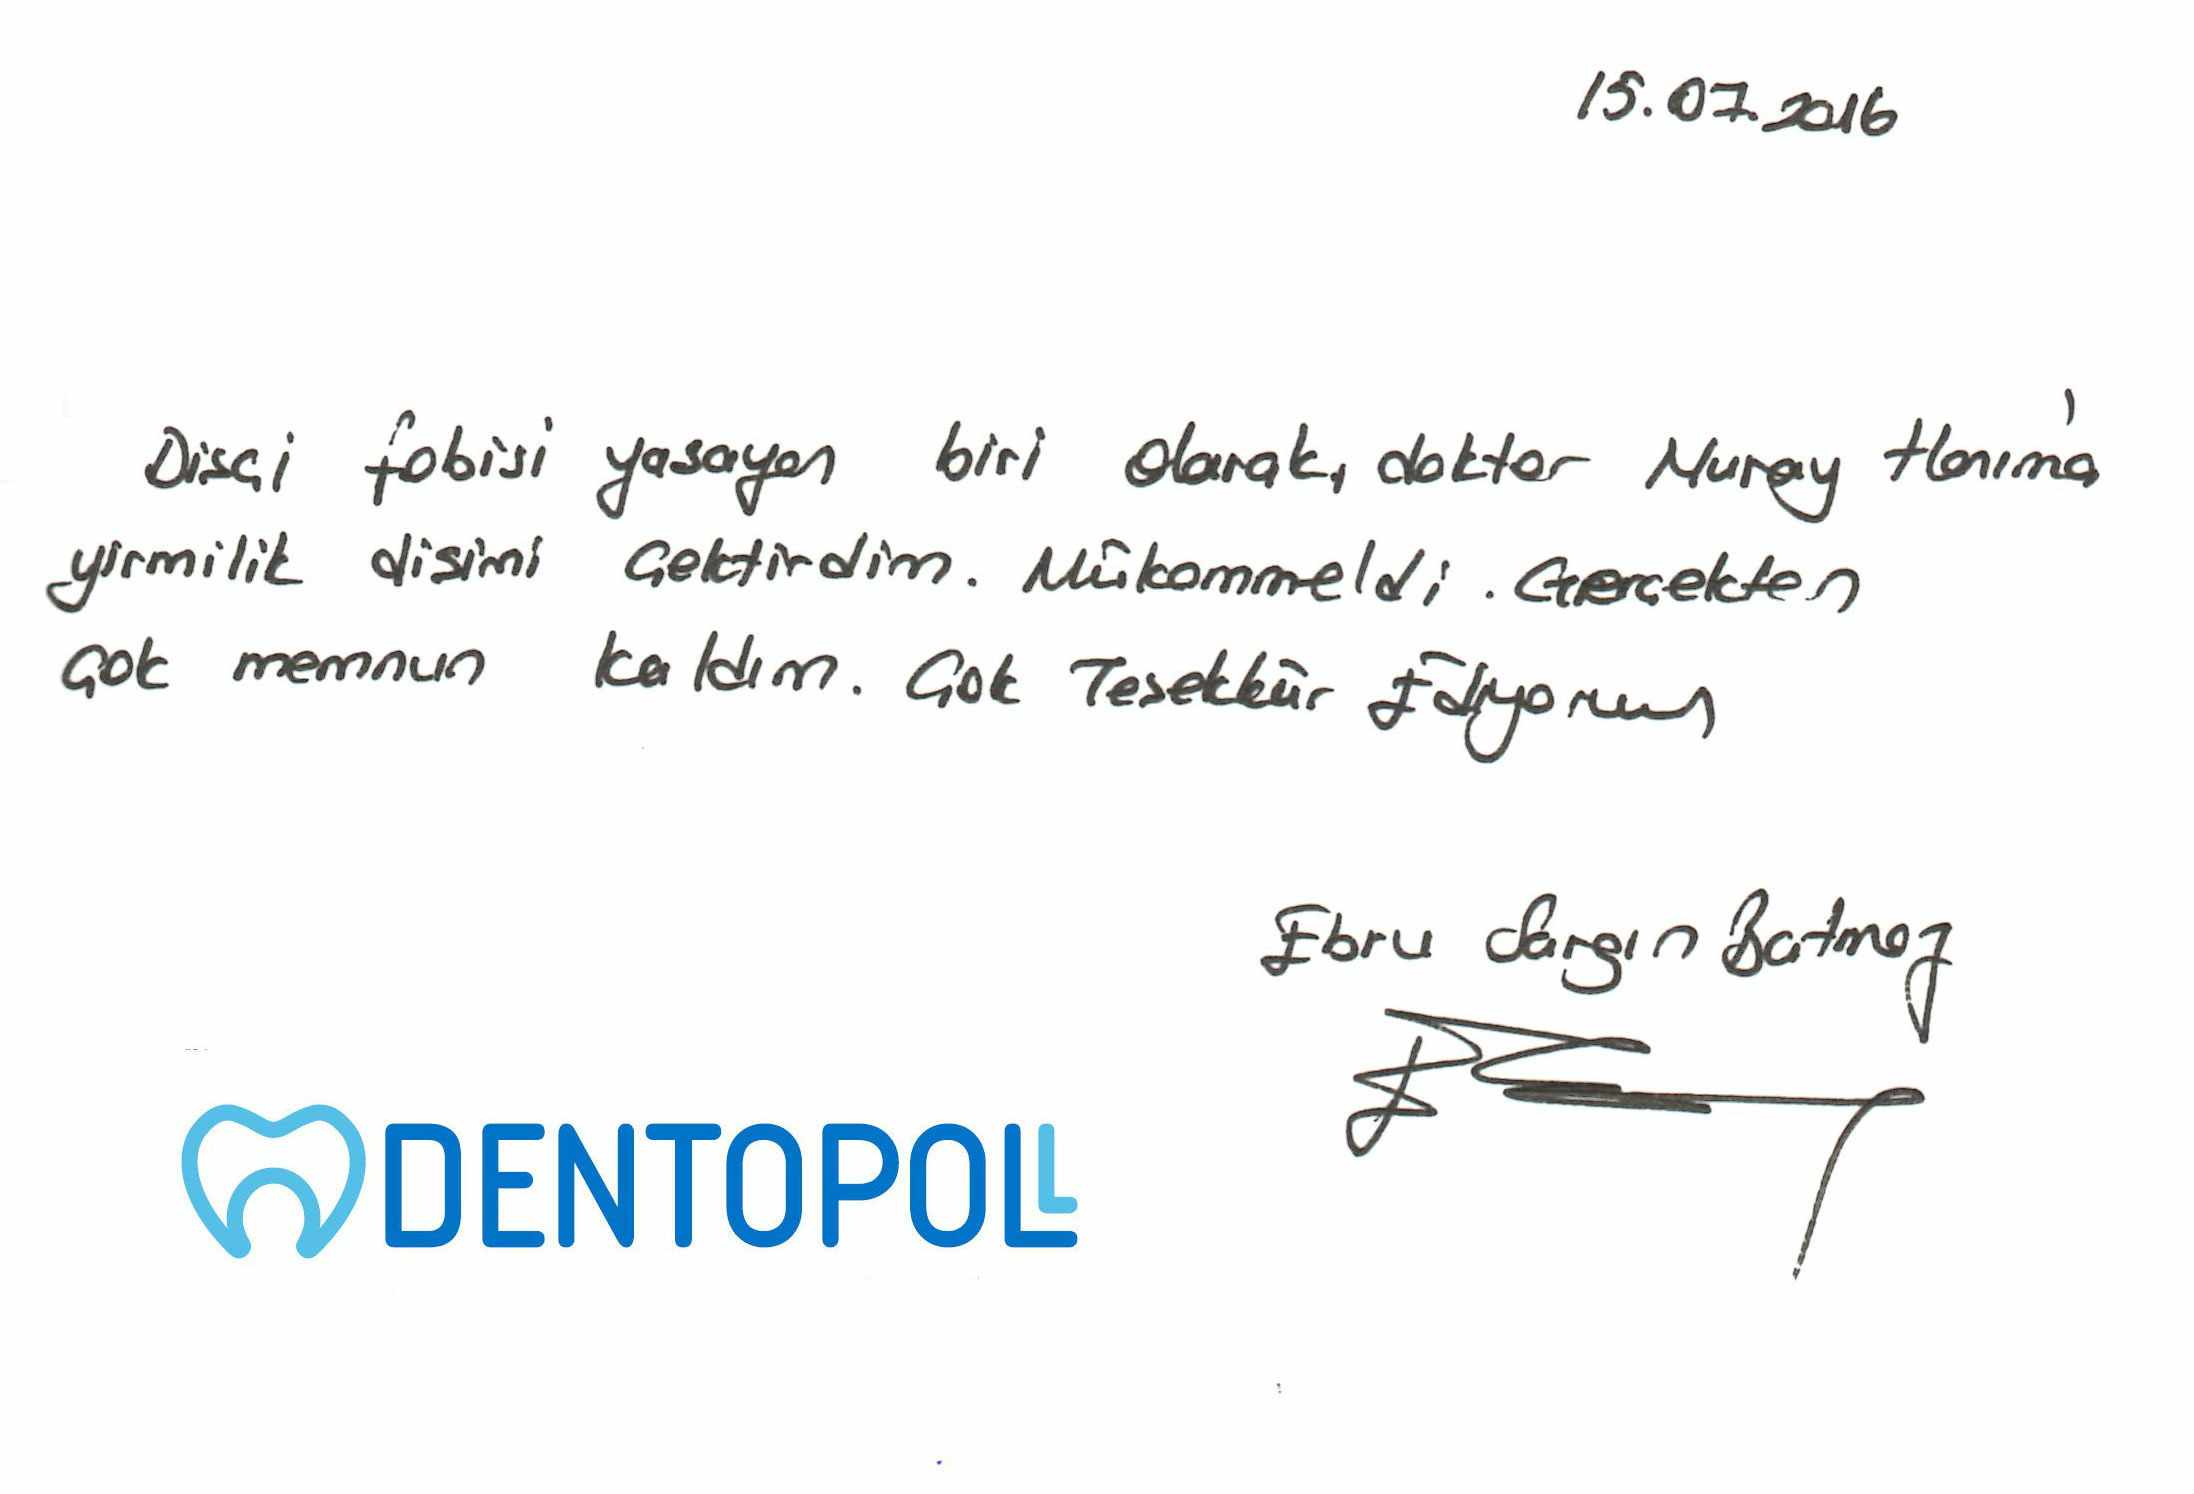 15.07.2016
Disçi fobisi yasayan biri olarak, doktor Nuray Hanım'a
yirmilik disimi Çektirdim. Mükemmeldi. Gerçekten
Çok memnun kaldım. Çok Tesekkür Ediyorum
Ebru Sargın Batmaz
DENTOPOLL